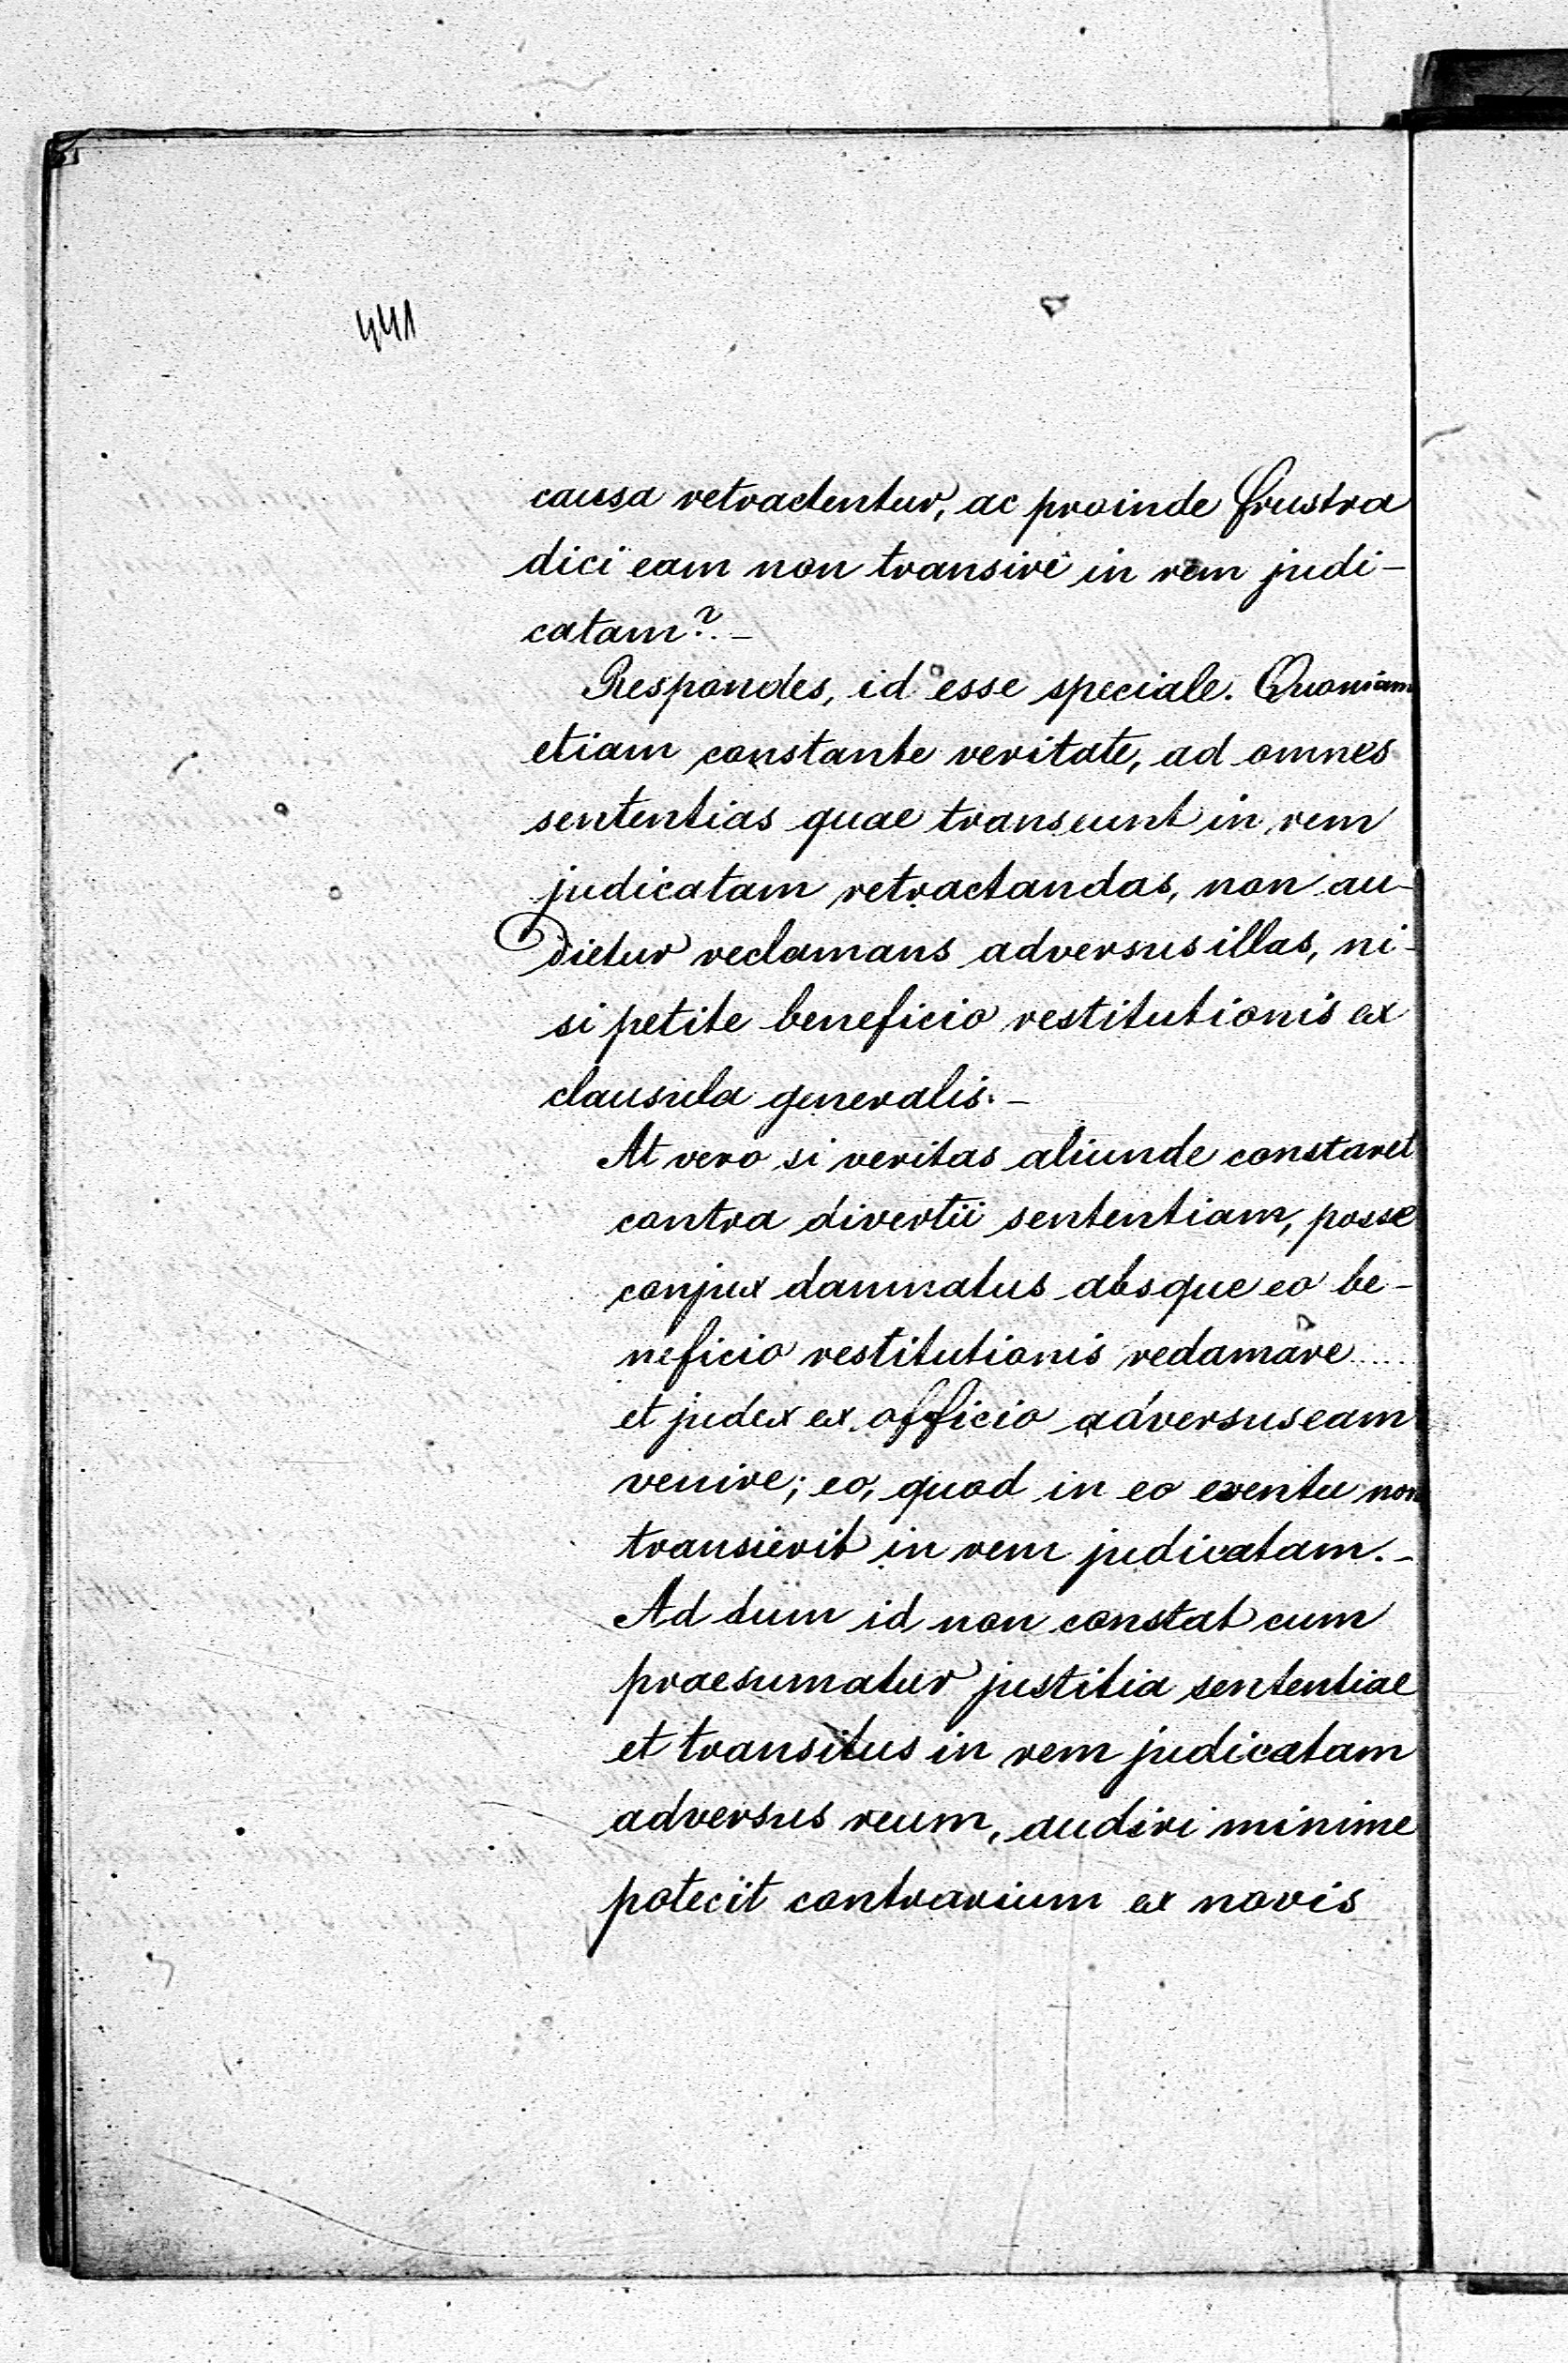 441
causa retractentur, ac proinde frustra
dici eam non transire in rem judi-
catam? -
Respondes, id esse speciale. Quoniam
etiam constante veritate, ad omnes
sententias quae transeunt in rem
judicatam retractandas, non au-
dietur reclamans adversus illas, ni-
si petite beneficio restitutionis ex
clausula generalis. -
At vero si veritas aliunde constaret
contra divertii sententiam, posse
conjux damnatus absque eo be-
neficio restitutionis redamare....
et judex ex officio adversus eam
venire; eo, quod in eo eventu non
transierit in rem judicatam. -
Ad dum id non constat cum
praesumatur justitia sententiae
et transitus in rem judicatam
adversus reum, audiri minime
potecit contrarium ex novis